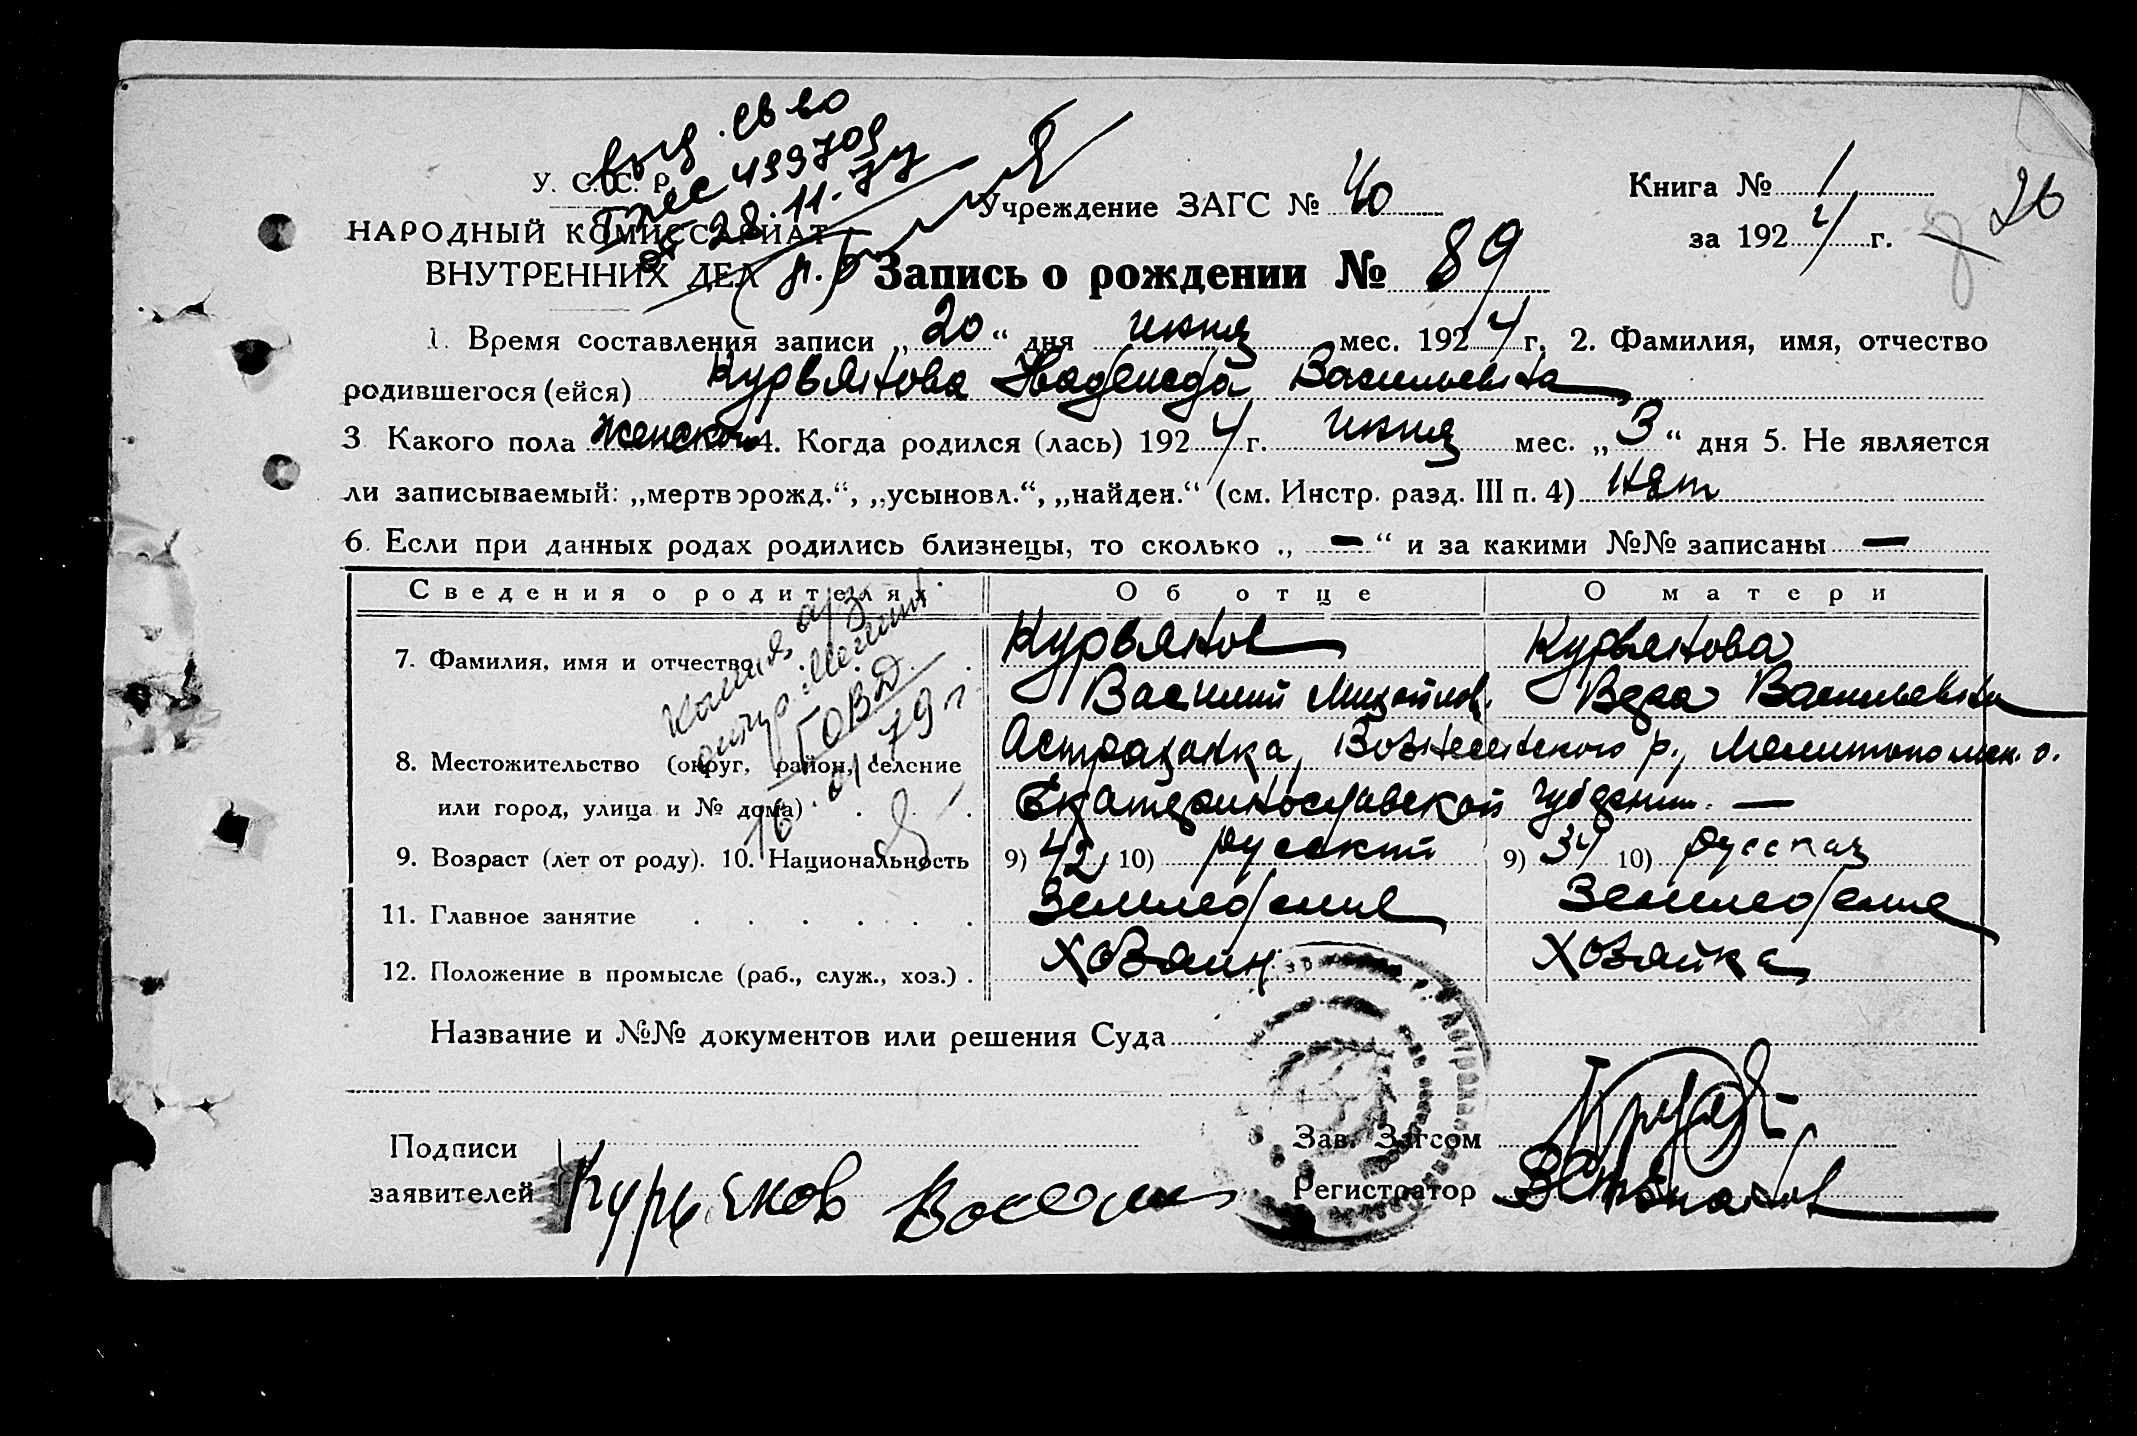 выд. св во
499709
28.11.77
У. С. С. Р.
НАРОДНЫЙ КОМИССАРИАТ
ВНУТРЕННИХ ДЕЛ
Учреждение ЗАГС № 40
Книга № 1
за 1924 г.
26
Запись о рождении № 89
1. Время составления записи „20“ дня июня мес. 1924 г. 2. Фамилия, имя, отчество
родившегося (ейся) Курьянова Надежда Васильевна
3 Какого пола женского 4. Когда родился (лась) 1924 г. июня мес. „3“ дня 5. Не является
ли записываемый: „мертворожд.“, „усыновл.“, „найден.“ (см. Инстр. разд. III п. 4) Нет
6. Если при данных родах родились близнецы, то сколько „—“ и за какими №№ записаны —
Сведения о родителях. Об отце О матери
7. Фамилия, имя и отчество Курьянов Курьянова
Василий Михайлов. Вера Васильевна
8. Местожительство (округ, район, селение Астраханка, Вознесенского р., Мелитопольск. о.
или город, улица и № дома) Екатеринославской губернии. —
9. Возраст (лет от роду). 10. Национальность 9) 42 10) русский 9) 34 10) русская
11. Главное занятие Земледелие Земледелие
12. Положение в промысле (раб., служ., хоз.) Хозяин Хозяйка
Копия
ГОВД
16.01.79 г.
Название и №№ документов или решения Суда
Подписи
заявителей Курьянов Василий
Зав. Загсом
Регистратор ВСтепанов